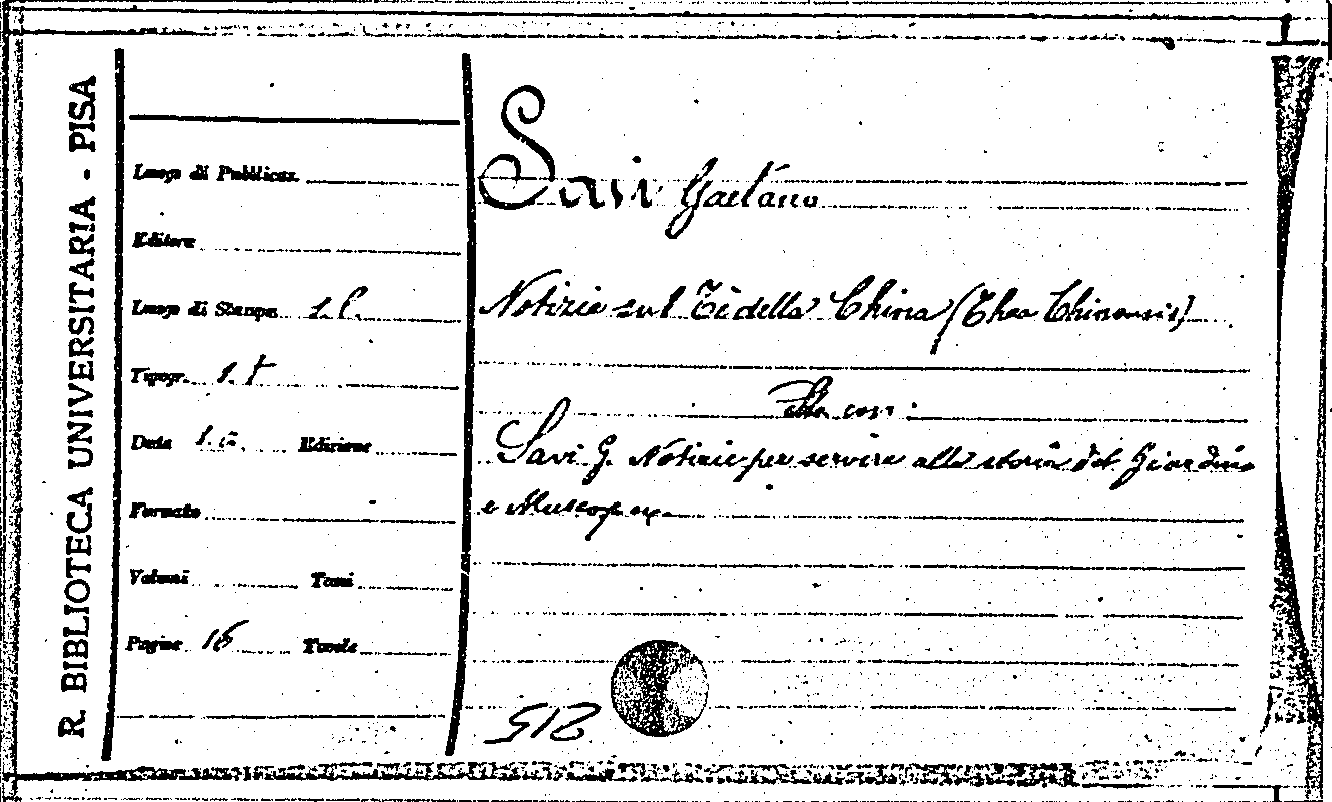 R. BIBLIOTECA UNIVERSITARIA - PISA
Luogo di Pubblicaz.
Editore
Luogo di Stampa s. l.
Tipogr. s. t
Data s. a. Edizione
Formato
Volumi Tomi
Pagine 16 Tavole
Savi Gaetano
Notizie sul Tè della China (Thea Chinensis)
con:
Savi G. Notizie per servire alla storia del Giardino
e Museo
512